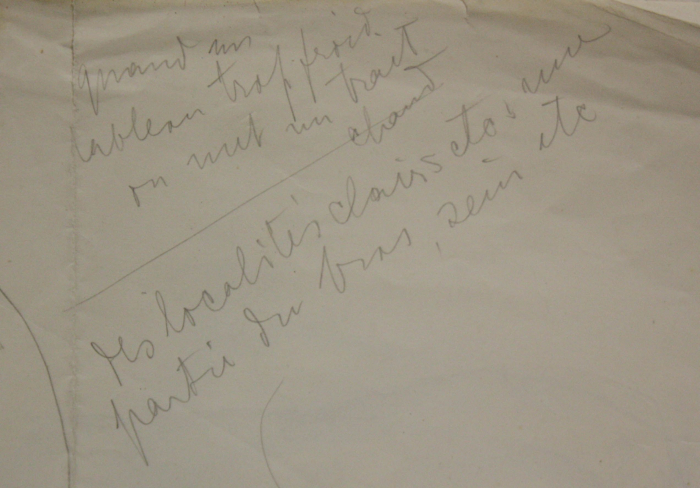 quand un
tableau trop froid
on met un trait
chaud
des localités clairs etc, une
partie du bras, sein etc